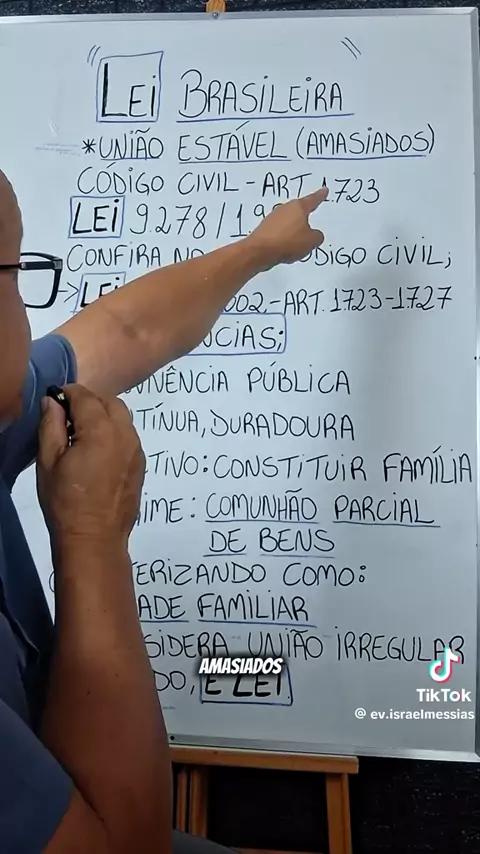 LEI BRASILEIRA
*UNIÃO ESTÁVEL (AMASIADOS)
CÓDIGO CIVIL - ART. 1723
LEI 9.278/19
CONFIRA NO CÓDIGO CIVIL;
→ LEI 002.-ART. 1723-1727
NCIAS;
VIVÊNCIA PÚBLICA
TÍNUA, DURADOURA
TIVO: CONSTITUIR FAMÍLIA
IME: COMUNHÃO PARCIAL
DE BENS
ERIZANDO COMO:
ADE FAMILIAR
SIDERA UNIÃO IRREGULAR
AMASIADOS
DO, É LEI.
TikTok
@ ev.israelmessias